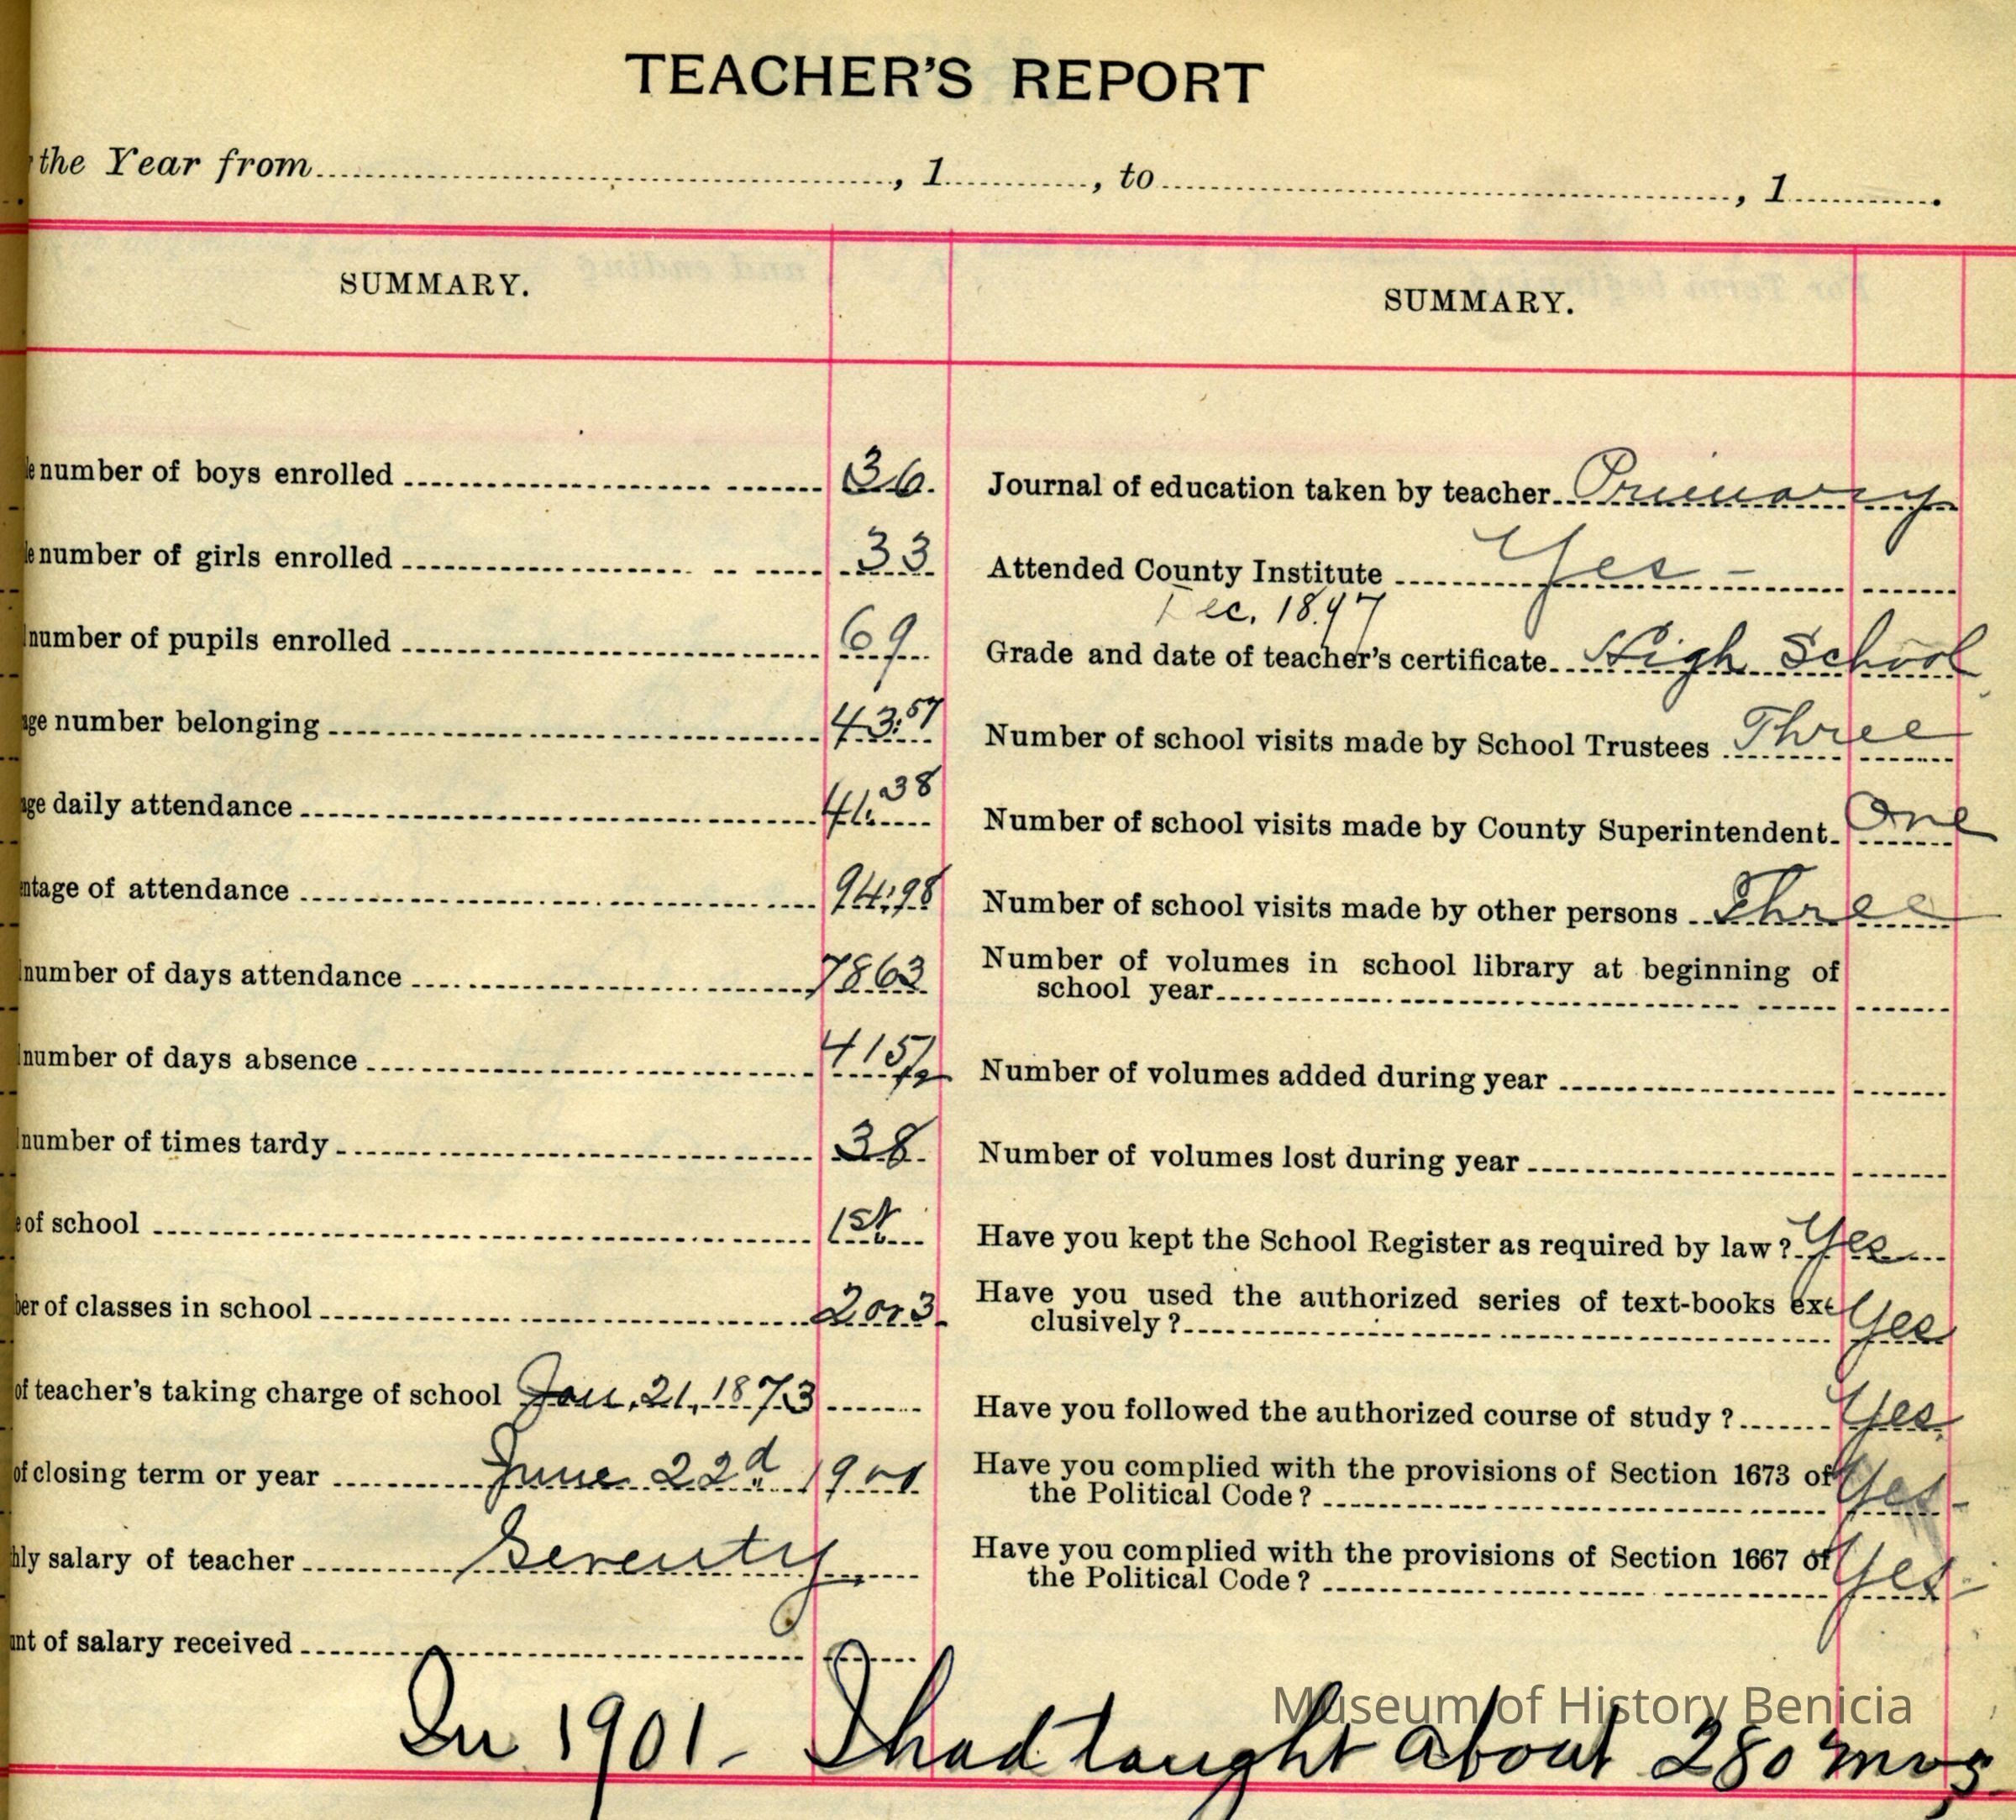 TEACHER'S REPORT
the Year from , 1 , to , 1 .
SUMMARY.
number of boys enrolled 36.
number of girls enrolled 33
number of pupils enrolled 69
number belonging 43.57
daily attendance 41.38
tage of attendance 94.98
number of days attendance 7863
number of days absence 415½
number of times tardy 38.
of school 1st
er of classes in school 2 or 3.
of teacher's taking charge of school Jan. 21, 1873
of closing term or year June 22d 1901.
ly salary of teacher Seventy
nt of salary received
SUMMARY.
Journal of education taken by teacher Primary
Attended County Institute Yes
Dec. 1897
Grade and date of teacher's certificate High School
Number of school visits made by School Trustees Three
Number of school visits made by County Superintendent One
Number of school visits made by other persons Three
Number of volumes in school library at beginning of
school year
Number of volumes added during year
Number of volumes lost during year
Have you kept the School Register as required by law? Yes
Have you used the authorized series of text-books ex-
clusively? Yes
Have you followed the authorized course of study? Yes
Have you complied with the provisions of Section 1673 of
the Political Code? Yes
Have you complied with the provisions of Section 1667 of
the Political Code? Yes
In 1901 - I had taught about 280 mos
Museum of History Benicia